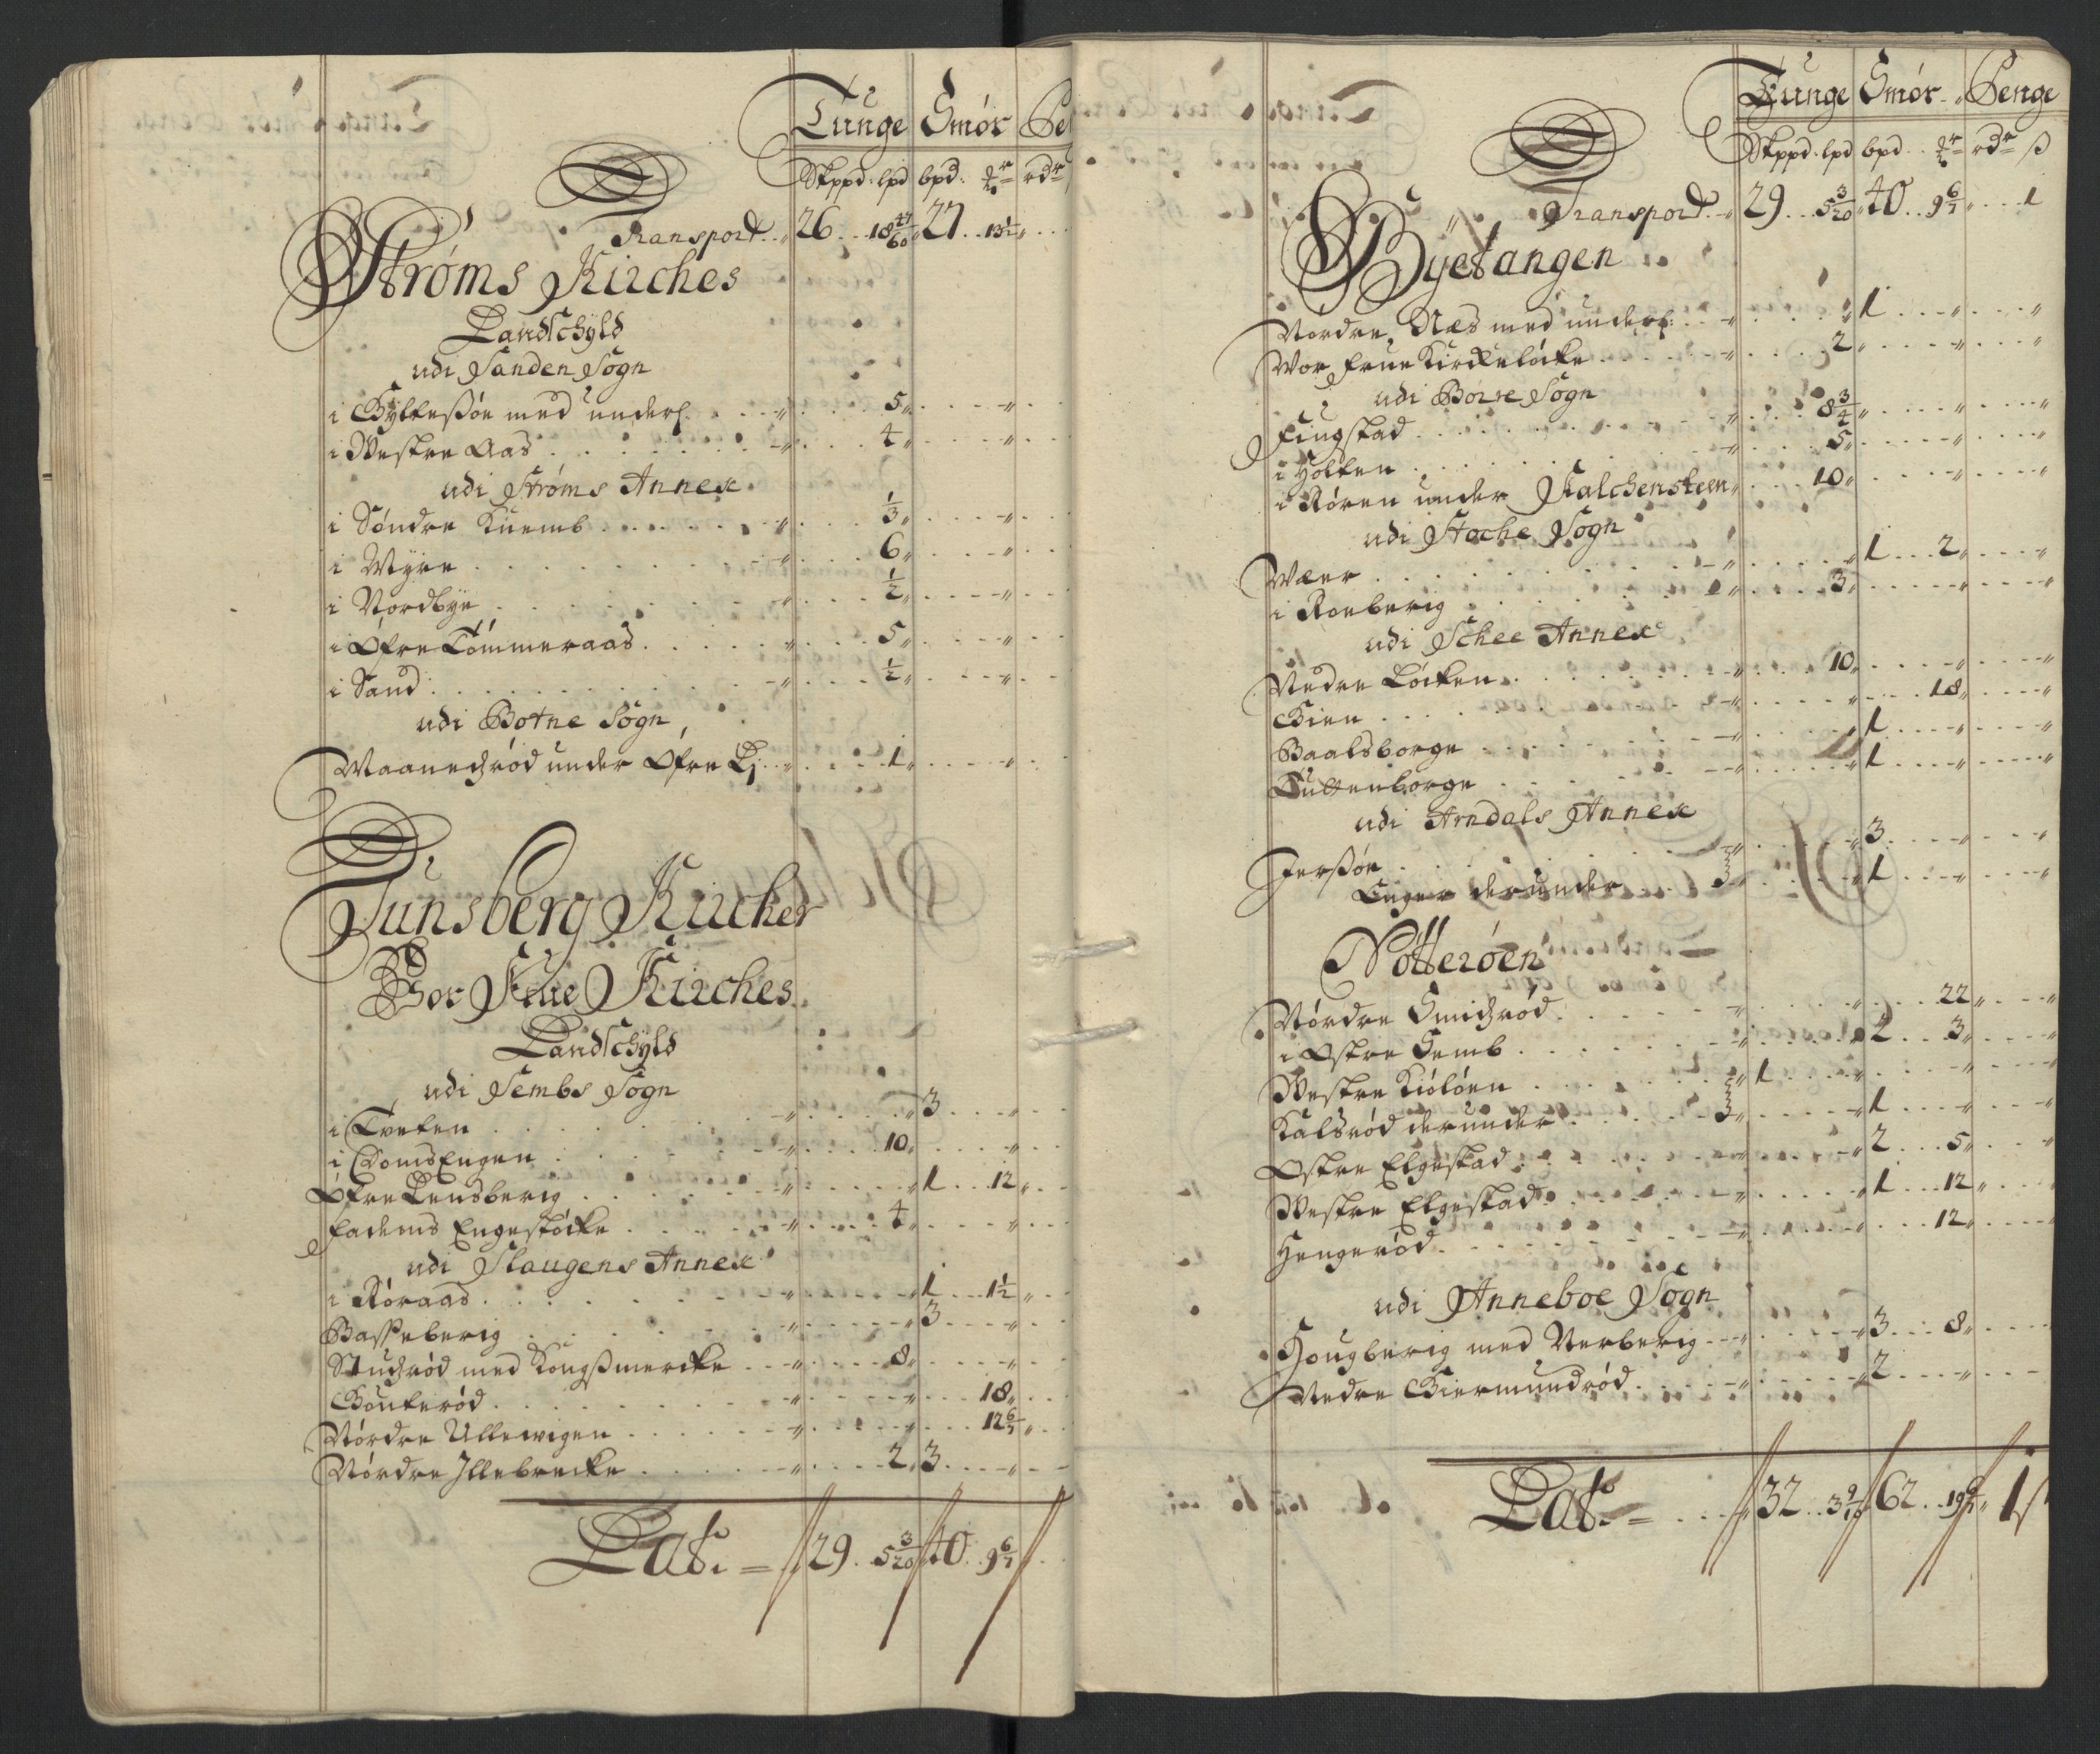 Tunge Smör Pe
Skppd: lpd bpd: rdr
Transport 26 18 47/60 27 13½
Strøms Kirches
Landschÿld
udi Sanden Sogn
i Gÿltessöe med underl. 5
i Westre Aas 4
udi Strøms Annex
i Söndre Kuemb ⅓
i Mÿre 6
i Nordbÿe ½
i Øfre Tömmeraas 5
i Sand ½
udi Botne Sogn
Waanedzröd under Øfre 1
Tunsberg Kircker
Vor Frue Kirches
Landschÿld
udi Sembs Sogn
i Tveten 3
i DomsEngen 10
Øfre Lensberig 1 12
Fadems Engestöcke 4
udi Slaugens Annex
i Röraas 1 1½
Basseberig 3
Studzröd med Kongssmercke 8
Gönteröd 18
Nördre Ullewigen 12 6/7
Nördre Illebrecke 2 3
Lat. = 29 5 3/20 40 9 6/7
Tunge Smör Penge
Skppd: lpd bpd rdr ß
Transport 29 5 3/20 40 9 6/7 1
Bÿetangen
Nordre Næs med underl: 1
Wor Frue Kirckelöcke 2
udi Borre Sogn
Fingstad 8¾
i Holten 5
i Rören under Falchensteen 10
udi Stocke Sogn
Wær 1 2
i Roeberig 3
udi Schee Annex
Nedre Löcken 10
Gien 18
Baalsborge 1
Tuttenborge 1
udi Arndals Annex
Jerssöe 3
Enger derunder 1
Nötteröen
Nördre Smidzröd 22
i Østre Semb 2 3
Westre Kiölöen 1
Kalsröd derunder 1
Østre Elgestad 2 5
Westre Elgestad 1 12
Hengeröd 12
udi Anneboe Sogn
Hougberig med Verberig 3 8
Nedre Giermundröd 2
Lat. = 32 3 9/10 62 19 6/7 1